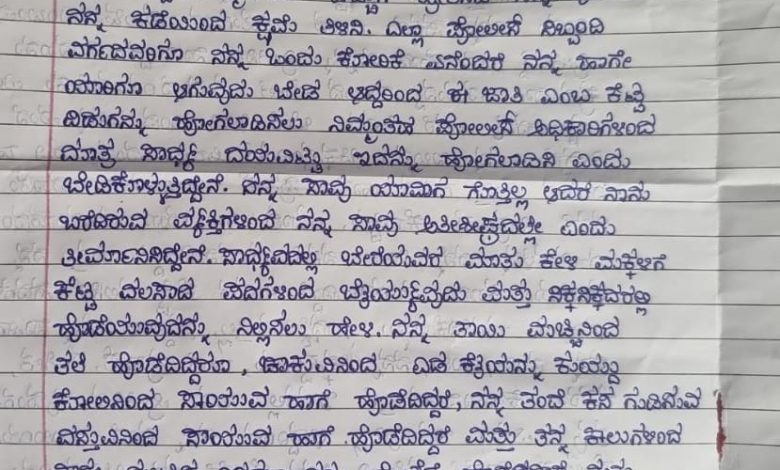 ನನ್ನ ಕಡೆಯಿಂದ ಕ್ಷಮೆ ತಿಳಿಸಿ. ಎಲ್ಲಾ ಪೋಲೀಸ್ ಸಿಬ್ಬಂದಿ
ವರ್ಗದವರಿಗೂ ನನ್ನ ಒಂದು ಕೋರಿಕೆ ಏನೆಂದರೆ ನನ್ನ ಹಾಗೇ
ಯಾರಿಗೂ ಆಗುವುದು ಬೇಡ ಆದ್ದರಿಂದ ಈ ಜಾತಿ ಎಂಬ ಕೆಟ್ಟ
ಪಿಡುಗನ್ನು ಹೋಗಲಾಡಿಸಲು ನಿಮ್ಮಂತಹ ಪೋಲೀಸ್ ಅಧಿಕಾರಿಗಳಿಂದ
ಮಾತ್ರ ಸಾಧ್ಯ ದಯವಿಟ್ಟು ಇದನ್ನು ಹೋಗಲಾಡಿಸಿ ಎಂದು
ಬೇಡಿಕೊಳ್ಳುತ್ತಿದ್ದೇನೆ. ನನ್ನ ಸಾವು ಯಾವಾಗ ಗೊತ್ತಿಲ್ಲ ಆದರೆ ನಾನು
ಬರೆದಿರುವ ವ್ಯಕ್ತಿಗಳಿಂದ ನನ್ನ ಸಾವು ಅತೀಶೀಘ್ರದಲ್ಲೇ ಎಂದು
ತೀರ್ಮಾನಿಸಿದ್ದೇನೆ. ಸಾಧ್ಯವಾದಲ್ಲಿ ಬೇರೆಯವರ ಮಾತು ಕೇಳಿ ಮಕ್ಕಳಿಗೆ
ಕೆಟ್ಟ ಹಲಸಾದ ಪದಗಳಿಂದ ಬೈಯ್ಯುವುದು ಮತ್ತು ಸಿಕ್ಕಸಿಕ್ಕದರಲ್ಲಿ
ಹೊಡೆಯುವುದನ್ನು ನಿಲ್ಲಿಸಲು ಹೇಳಿ. ನನ್ನ ತಾಯಿ ಮಚ್ಚಿನಿಂದ
ತಲೆ ಹೊಡೆದಿದ್ದರೂ, ಚಾಕುವಿನಿಂದ ಎಡ ಕೈಯನ್ನು ಕುಯ್ದು
ಕೋಲಿನಿಂದ ಸಾಯುವ ಹಾಗೆ ಹೊಡೆದಿದ್ದರೆ, ನನ್ನ ತಂದೆ ಕಸ ಗುಡಿಸುವ
ವಸ್ತುವಿನಿಂದ ಸಾಯುವ ಹಾಗೆ ಹೊಡೆದಿದ್ದರೆ ಮತ್ತು ತನ್ನ ಕಾಲುಗಳಿಂದ